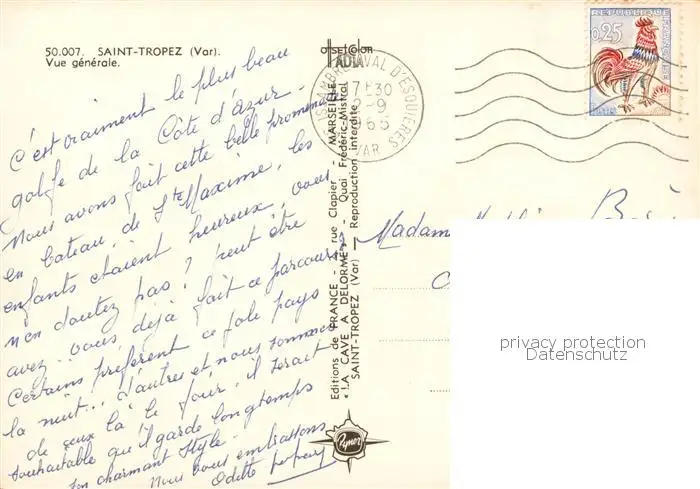 50.007. SAINT-TROPEZ (Var).
Vue générale.
OFFSET COLOR
ADIA
VAL D'ESQUIERES
VAR
REPUBLIQUE FRANCAISE
0,25
C'est vraiment le plus beau
golfe de la Côte d'azur -
Nous avons fait cette belle promenade
en bateau, de Ste Maxime, les
enfants étaient heureux, vous
n'en doutez pas ? peut être
avez-vous déjà fait ce parcours
Certains préfèrent ce joli pays
la nuit... d'autres et nous sommes
de ceux là le jour, il serait
souhaitable qu'il garde longtemps
son charmant style -
Nous vous embrassons
Odette
Editions de FRANCE - rue Clapier - MARSEILLE
« LA CAVE A DELORME » - Quai Frédéric-Mistral
SAINT-TROPEZ (Var) - Reproduction interdite
Madame
privacy protection
Datenschutz